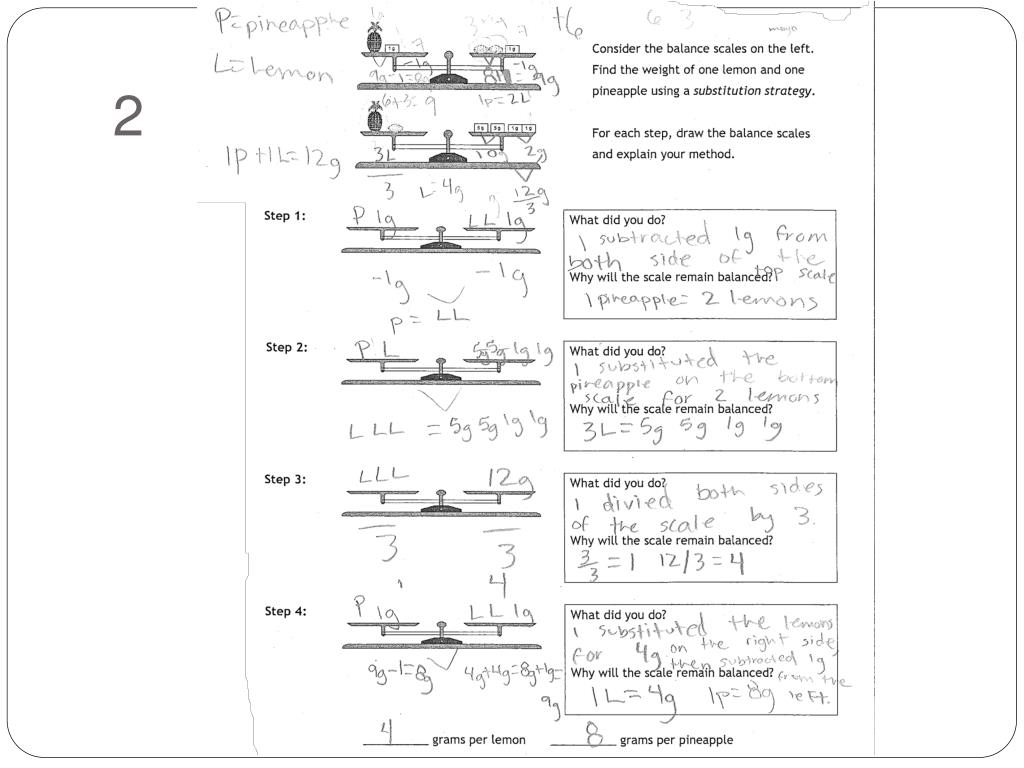 2
P=pineapple
+6
6 3
L=Lemon
1g
7
7
-1g
-1g
9g-1=8g
9g
6+3=9
1p=2L
Consider the balance scales on the left.
Find the weight of one lemon and one
pineapple using a substitution strategy.
For each step, draw the balance scales
and explain your method.
5g 5g 1g 1g
1p+1L=12g
3L
3
L=4g
10g 2g
12g
3
Step 1:
P 1g
LL 1g
-1g
-1g
p= LL
What did you do?
I subtracted 1g from
both side of the
top scale
Why will the scale remain balanced?
1 pineapple= 2 lemons
Step 2:
P L
5g 5g 1g 1g
L L L = 5g 5g 1g 1g
What did you do?
I substituted the
pineapple on the bottom
scale for 2 lemons
Why will the scale remain balanced?
3L=5g 5g 1g 1g
Step 3:
LLL
12g
3
3
4
What did you do?
I divied both sides
of the scale by 3.
Why will the scale remain balanced?
3/3 =1 12/3=4
Step 4:
P 1g
LL 1g
9g-1=8g
4g+4g=8g+1g=
9g
What did you do?
I substituted the lemons
for 4g on the right side,
then subtracted 1g
from the
left.
Why will the scale remain balanced?
1L=4g 1p=8g
4 grams per lemon 8 grams per pineapple